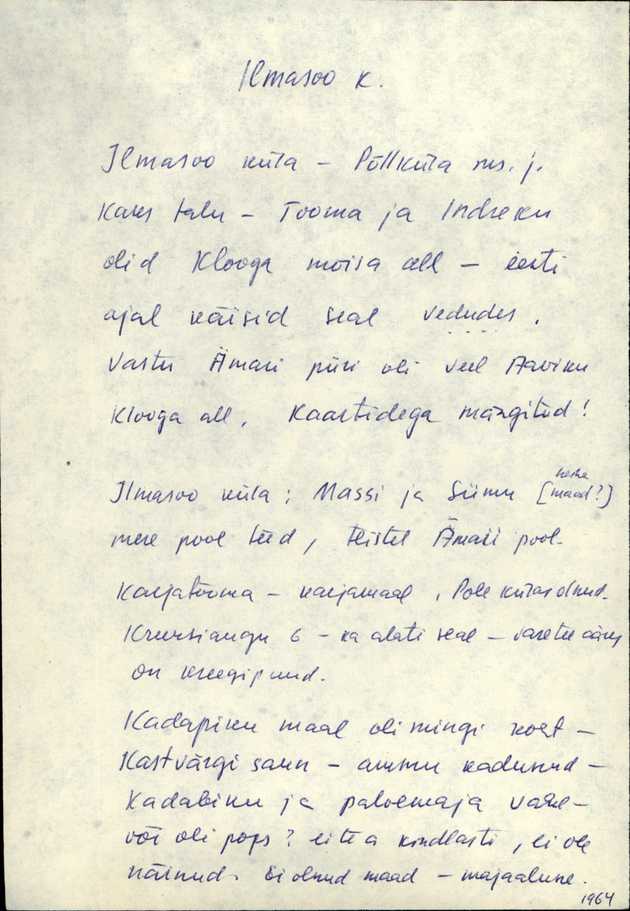 Ilmasoo k.
Ilmasoo küla – Põllküla ms. j.
Kaks talu – Tooma ja Indreku
olid Klooga mõisa all – eesti
ajal käisid seal vedudes.
Vastu Ämari piiri oli veel Aaviku
Klooga all. Kaartidega märgitud!
Ilmasoo küla: Massi ja Siimu [maad?]
mere pool teed, teistel Ämari pool.
Karjatooma – karjamaal. Pole külas olnud.
6 – ka alati seal – ääres
on kreegipuud.
Kadapiku maal oli mingi koht –
Kastvärgi saun – ammu kadunud –
Kadabiku ja palvemaja vahel –
või oli pops? ei tea kindlasti, ei ole
näinud. Ei olnud maad – majaalune.
1964